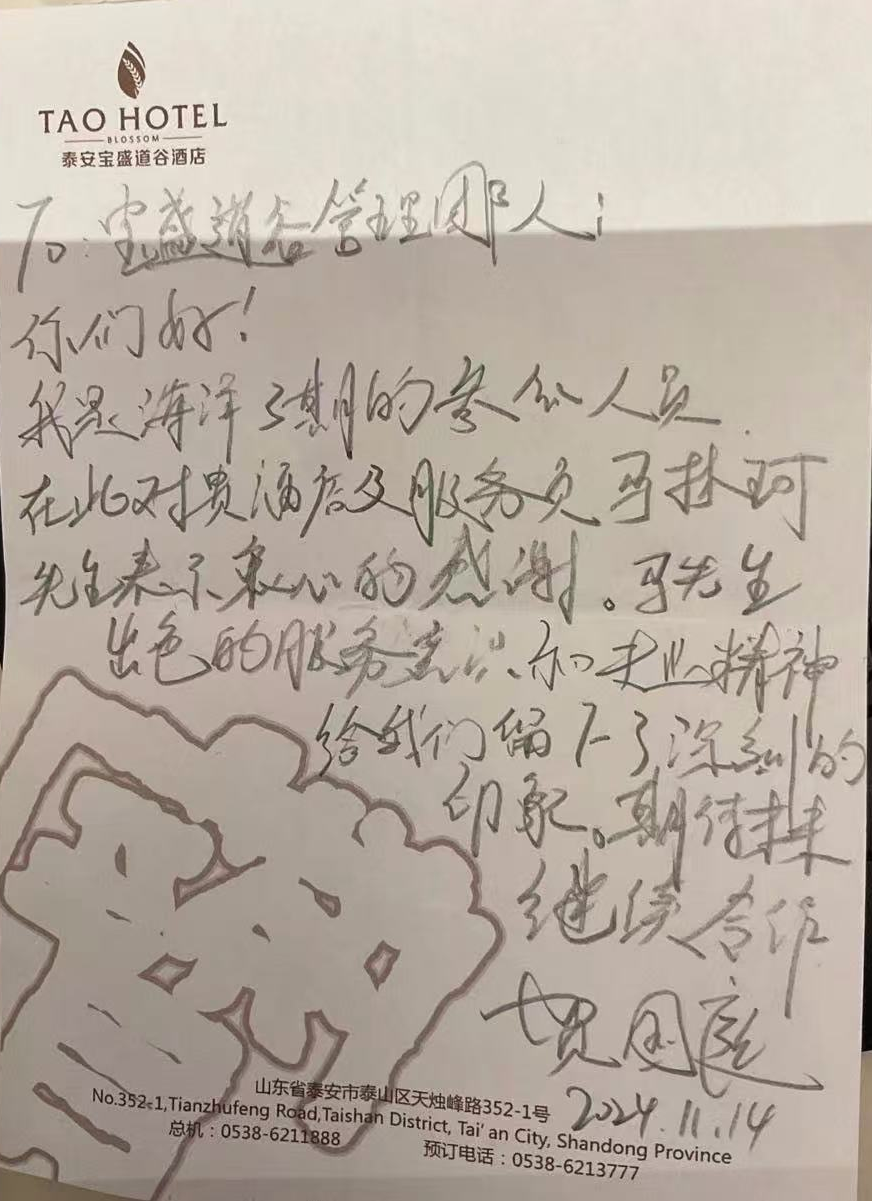 TAO HOTEL
BLOSSOM
泰安宝盛道谷酒店
To:宝盛道谷管理团队人:
你们好!
我是海洋3期的参会人员
在此对贵酒店及服务员马林珂
先生表示衷心的感谢。马先生
出色的服务意识、和专业精神
给我们留下了深刻的
印象。期待未来
继续合作
贺国庭
2024.11.14
山东省泰安市泰山区天烛峰路352-1号
No.352-1,Tianzhufeng Road,Taishan District, Tai'an City, Shandong Province
总机:0538-6211888
预订电话:0538-6213777